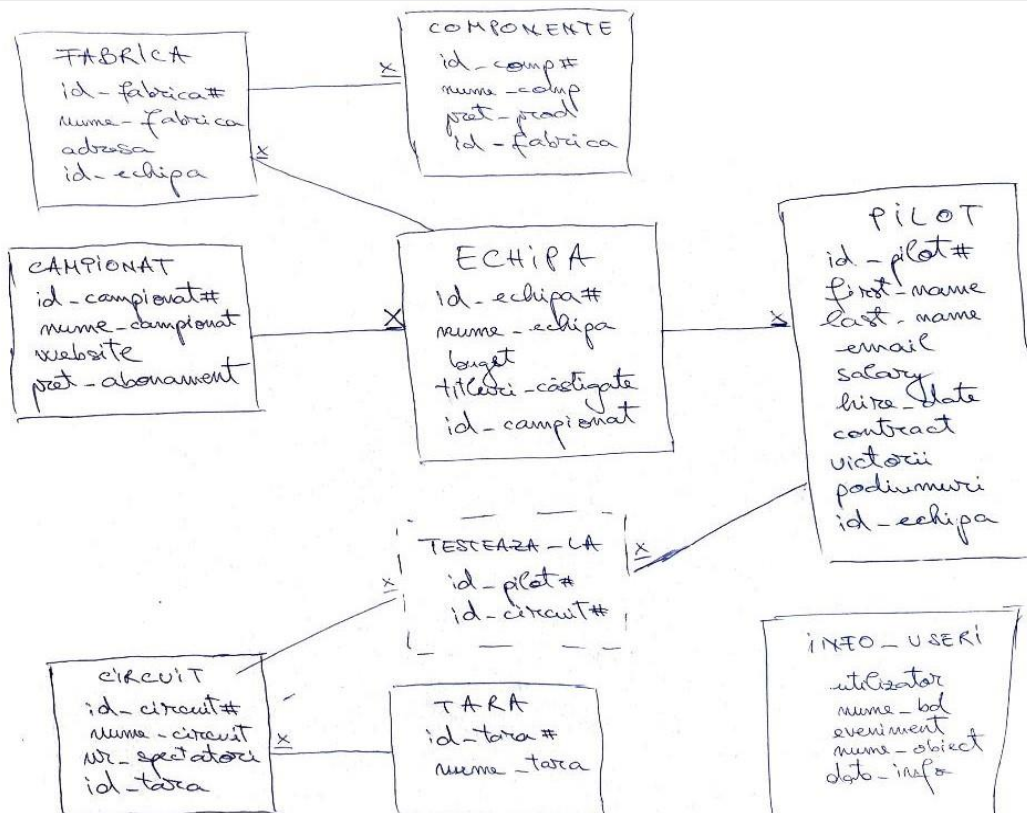 FABRICA
id-fabrica#
nume-fabrica
adresa
id-echipa
COMPONENTE
id-comp#
nume-comp
pret-prod
id-fabrica
CAMPIONAT
id-campionat#
nume-campionat
website
pret-abonament
ECHIPA
id-echipa#
nume-echipa
buget
titluri-castigate
id-campionat
PILOT
id-pilot#
first-name
last-name
email
salary
hire-date
contract
victorii
podiumuri
id-echipa
TESTEAZA-LA
id-pilot#
id-circuit#
CIRCUIT
id-circuit#
nume-circuit
nr-spectatori
id-tara
TARA
id-tara#
nume-tara
INFO-USERI
utilizator
nume-bd
eveniment
nume-obiect
data-info
x
x
x
x
x
x
x